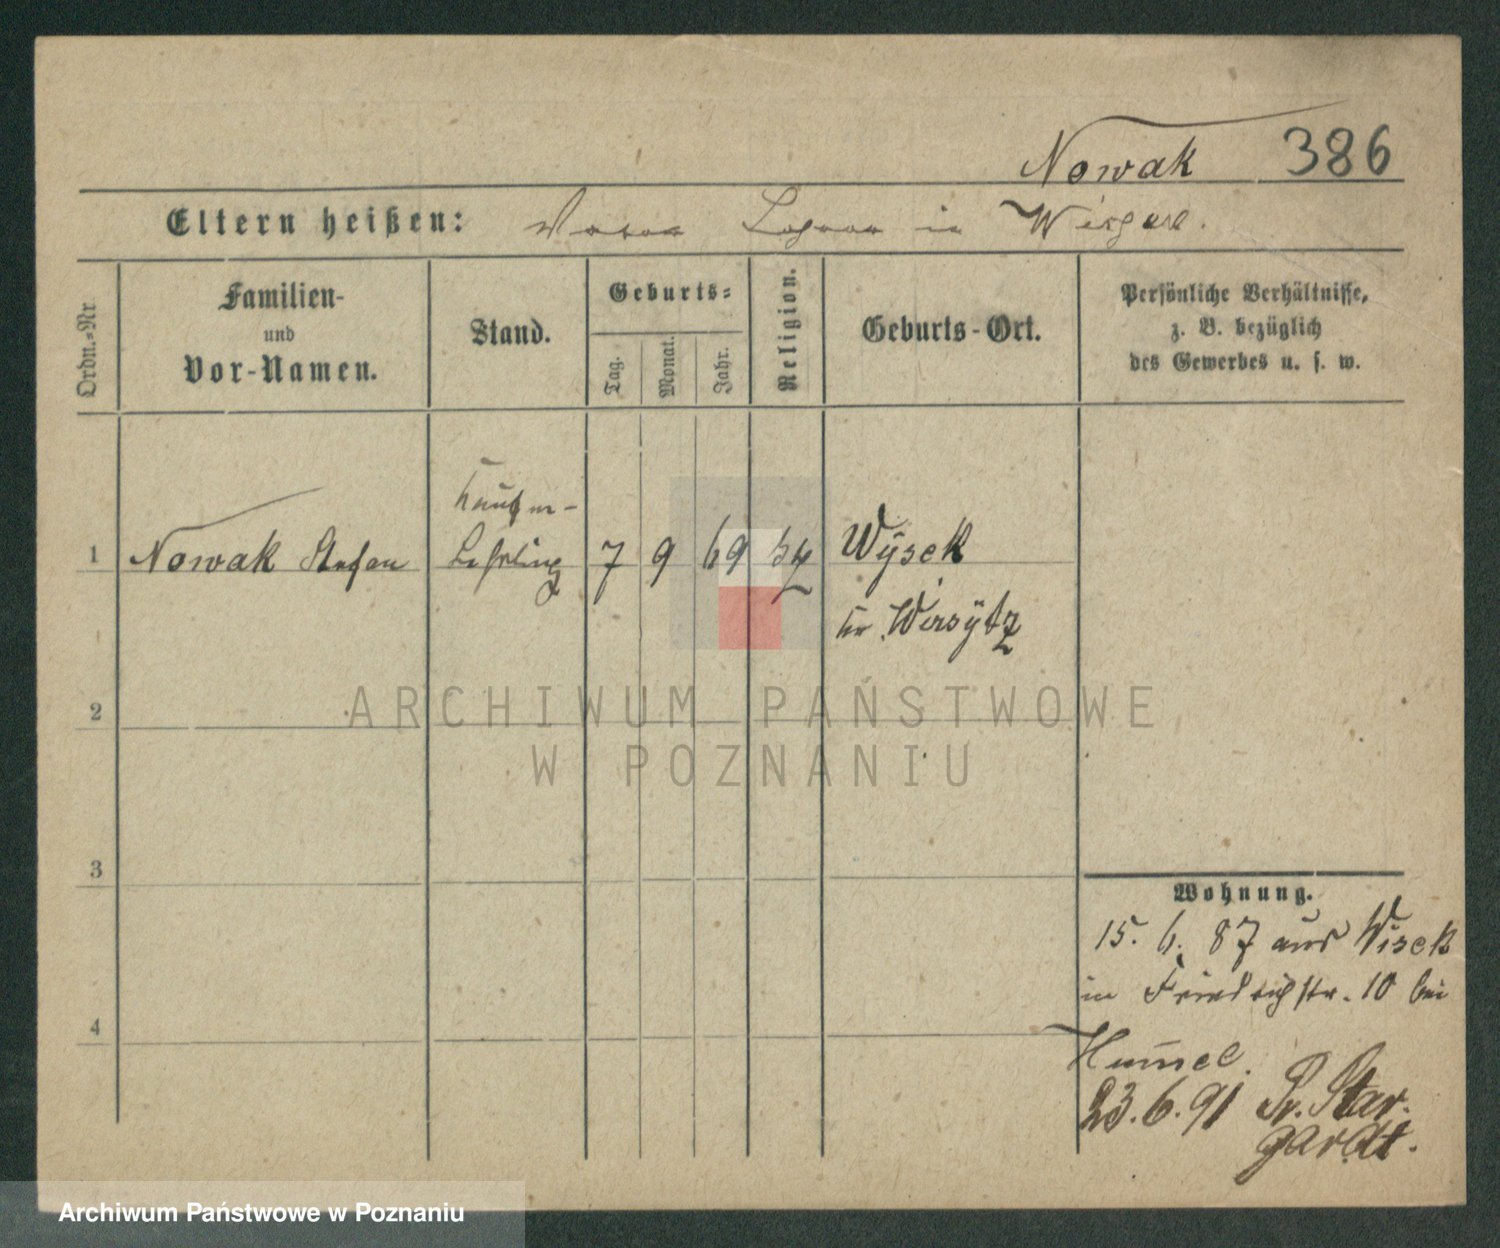 Nowak 386
Eltern heißen: in
Ordn.-Nr
Familien-
und
Vor-Namen.
Stand.
Geburts-
Tag.
Monat.
Jahr.
Religion.
Geburts-Ort.
Persönliche Verhältnisse,
z. B. bezüglich
des Gewerbes u. s. w.
Kaufm-
1 Nowak Stefan Lehrling 7 9 69 Wÿsek
Kr. Wirsÿtz
2
ARCHIWUM PAŃSTWOWE
W POZNANIU
3
Wohnung.
15. 6. 87 aus Wisek
in Friedrichstr. 10 bei
4
23.6.91 Pr. Star-
gardt.
Archiwum Państwowe w Poznaniu